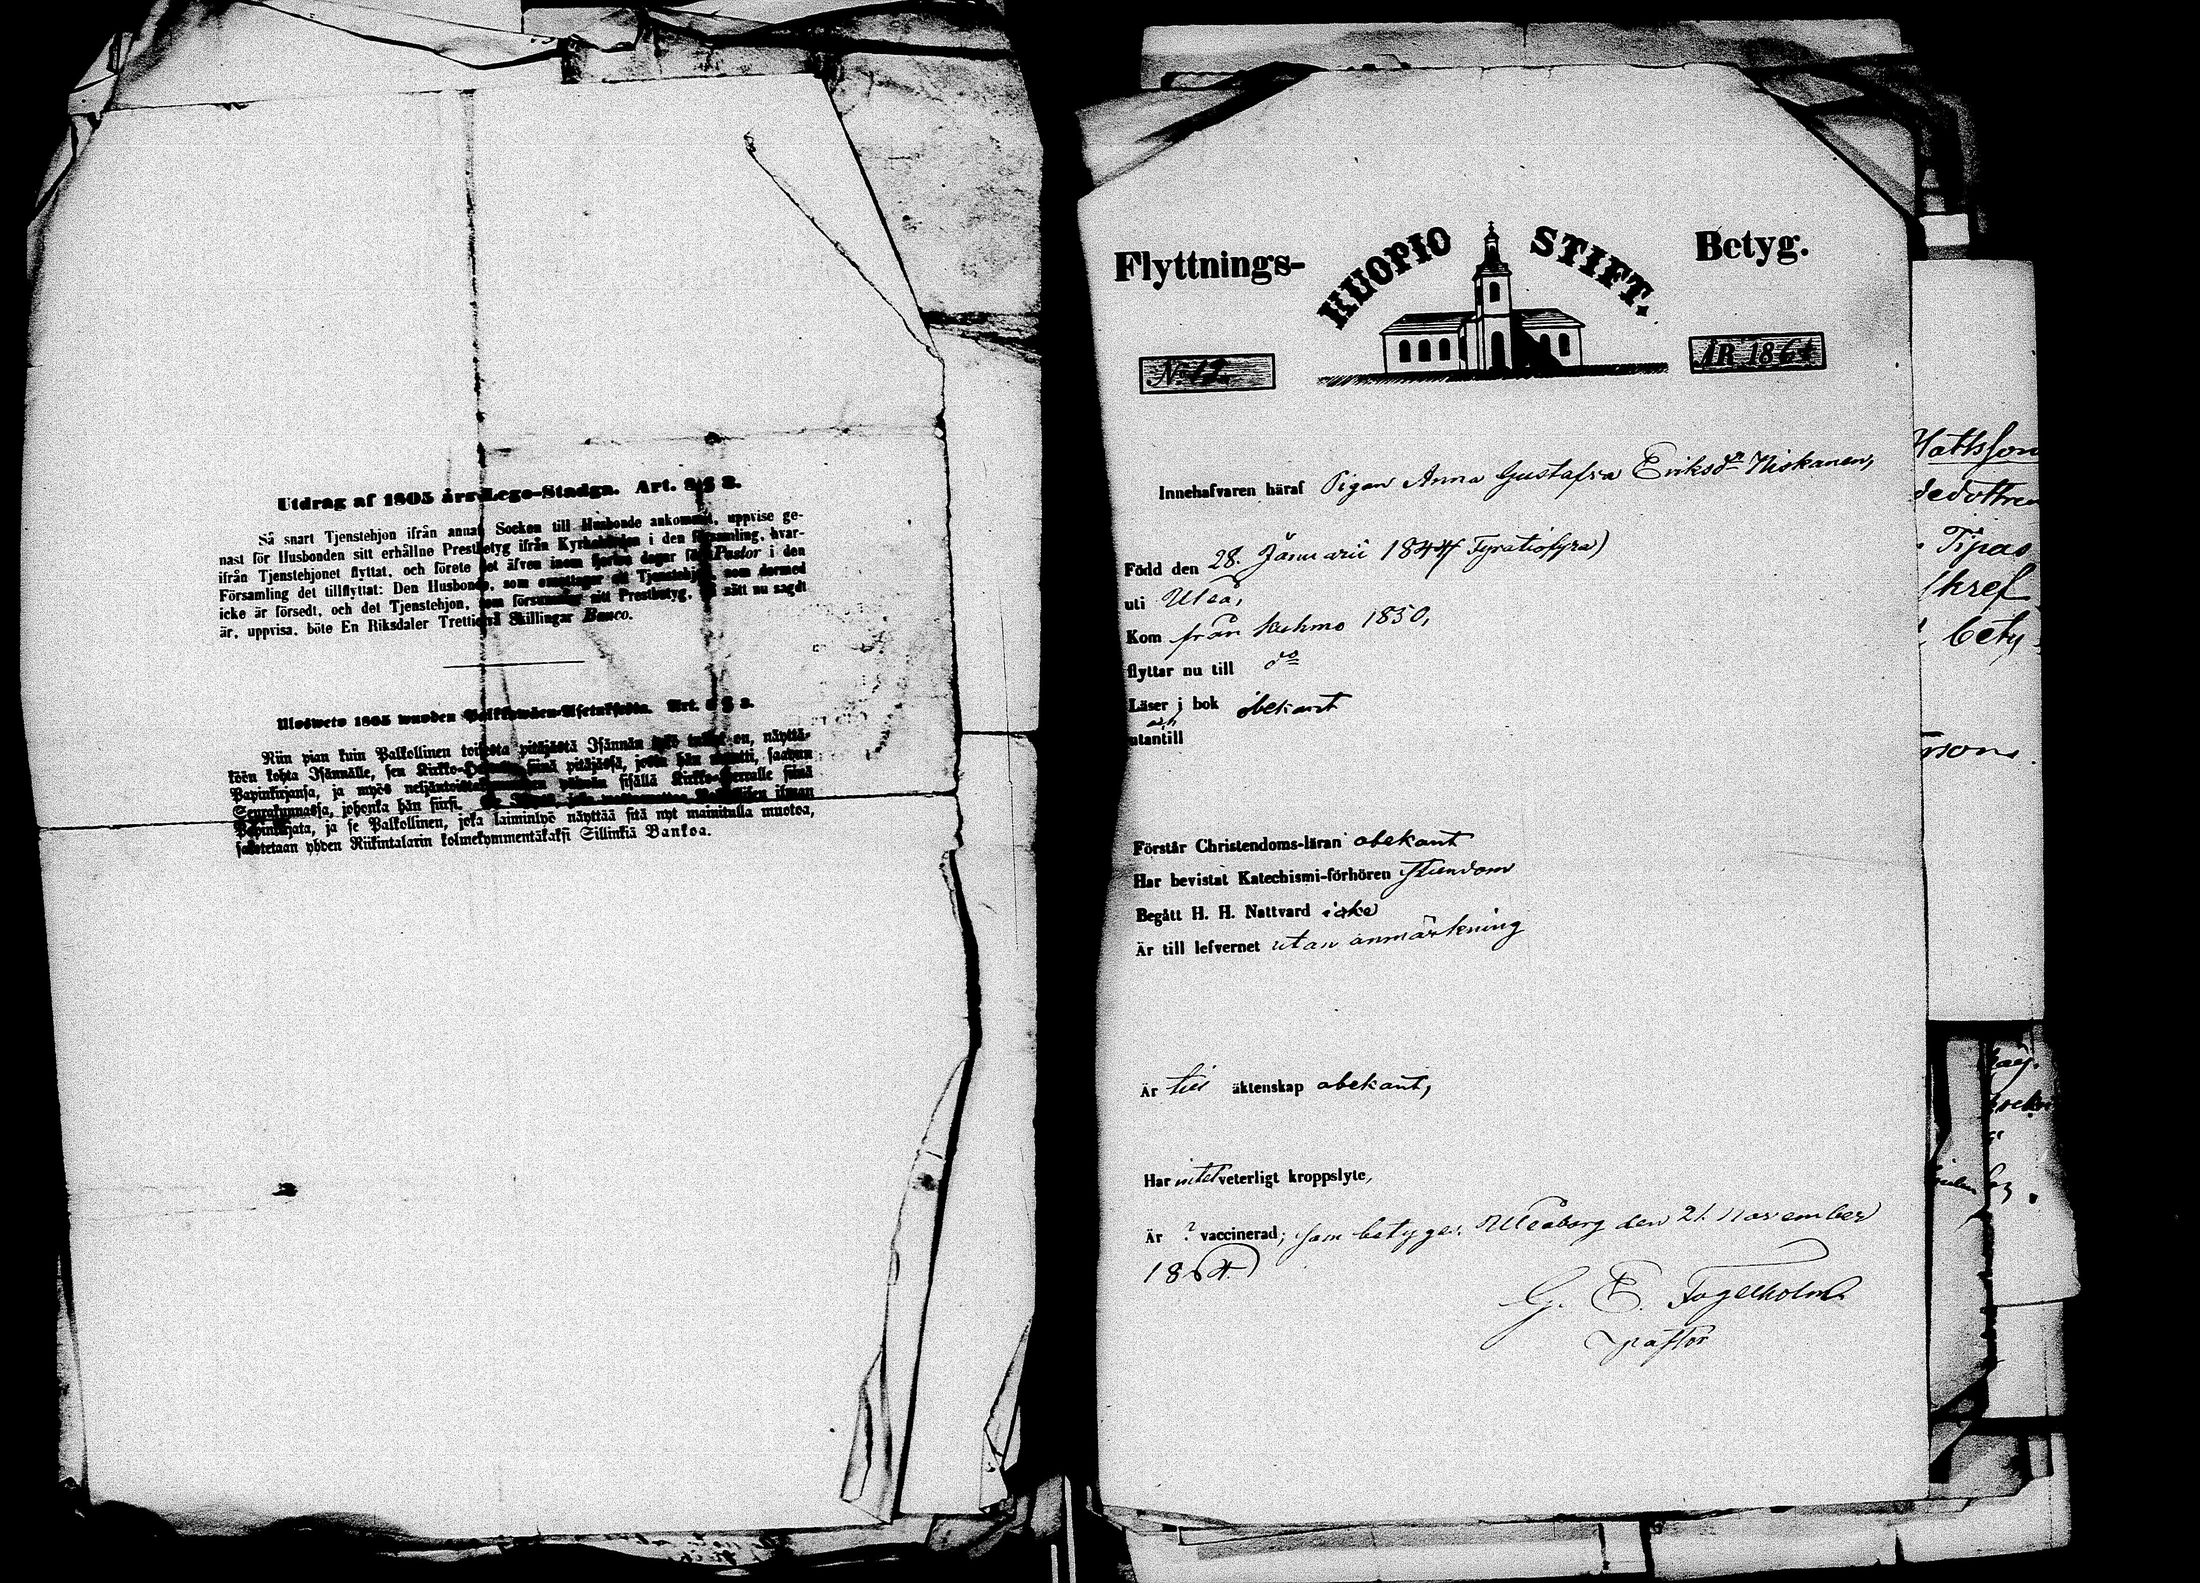 Utdrag af 1805 års Lego-Stadga. Art. 8 § 2.
Så snart Tjenstehjon ifrån annat Socken till Husbonde ankommit, uppvise ge-
nast för Husbonden sitt erhållne Prestbetyg ifrån Kyrkoherden i den Församling, hvar-
ifrån Tjenstehjonet flyttat, och förete det äfven inom fjorton dagar för Pastor i den
Församling det tillflyttat: Den Husbonde, som emottager ett Tjenstehjon, som dermed
icke är försedt, och det Tjenstehjon, som försummar sitt Prestbetyg, på sätt nu sagdt
är, uppvisa, böte En Riksdaler Trettiotvå Skillingar Banco.
Ulosweto 1805 wuoden Palkkawäen-Asetuksesta. Art.
Niin pian kuin Palkollinen toisesta pitäjästä Isännän työ on, näyttä-
köön kohta Isännälle, sen Kirkko- siinä pitäjässä, josta hän muutti, saatuun
Papinkirjansa, ja myös neljäntoista päiwän sisällä Kirkko-Herralle siinä
Seurakunnassa, johonka hän siirsi. ilman
Papinkirjata, ja se Palkollinen, joka laiminlyö näyttää sitä nyt mainitulla muotoa,
sakotetaan yhden Riikintalarin kolmekymmentäkaksi Sillinkiä Bankoa.
Flyttnings- KUOPIO STIFT. Betyg.
No 12. ÅR 1864
Innehafvaren häraf Pigan Anna Gustafva Eriksdr Niskanen,
Född den 28. Januarii 1844 (Fyratiofyra)
uti Uleå,
Kom från Kuhmo 1850,
flyttar nu till do
Läser i bok obekant
och
utantill
Förstår Christendoms-läran obekant
Har bevistat Katechismi-förhören stundom
Begått H. H. Nattvard icke
Är till lefvernet utan anmärkning
Är till äktenskap obekant,
Har intet veterligt kroppslyte,
Är ? vaccinerad; som betygar. Uleåborg den 21. November
1864.
G. E. Fogelholm.
pastor